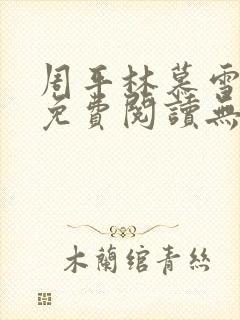 周平林慕雪
免費閱讀無
木蘭綰青絲